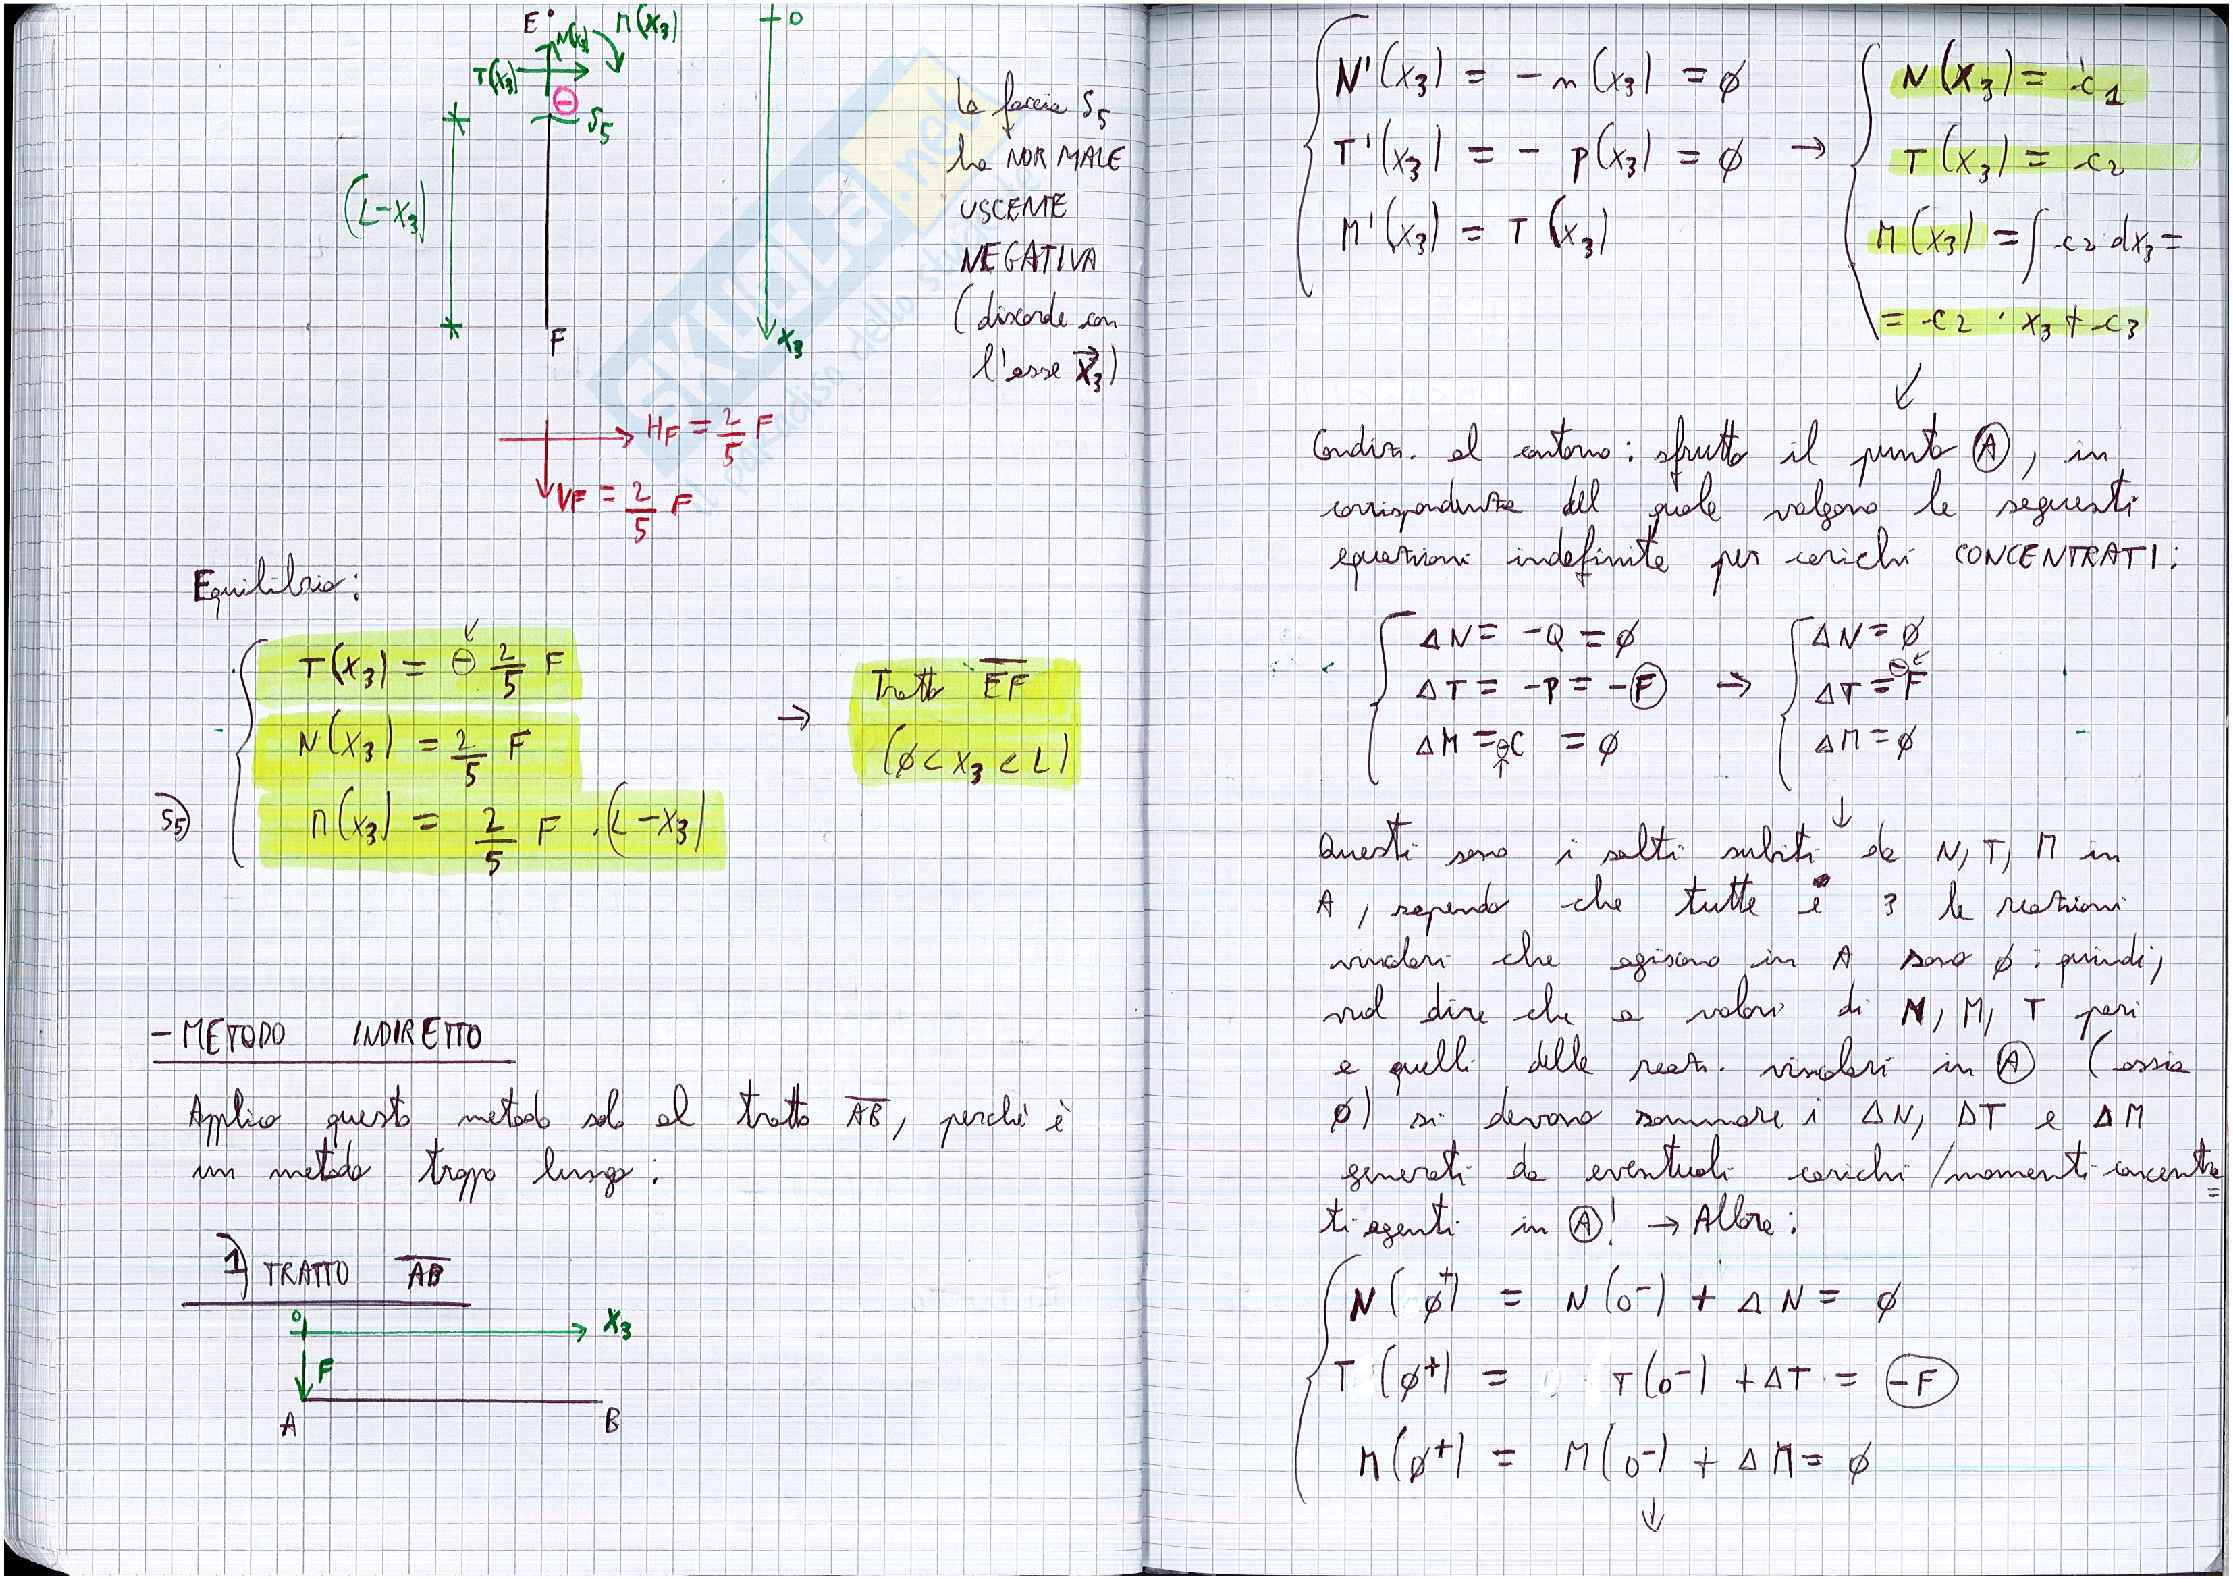 E
N(x3)
M(x3)
T(x3)
⊖
S5
(L-x3)
F
0
x3
la faccia S5
ha NORMALE
USCENTE
NEGATIVA
(discorde con
l'asse x3)
HF = 2/5 F
VF = 2/5 F
Equilibrio:
T(x3) = ⊖ 2/5 F
N(x3) = 2/5 F
S5) M(x3) = 2/5 F · (L-x3)
→ Tratto EF
(ø < x3 < L)
- METODO INDIRETTO
Applico questo metodo solo al tratto AB, perché è
un metodo troppo lungo:
1) TRATTO AB
0
x3
F
A
B
N'(x3) = - n(x3) = ø
T'(x3) = - p(x3) = ø →
M'(x3) = T(x3)
N(x3) = c1
T(x3) = c2
M(x3) = ∫ c2 dx3 =
= c2 · x3 + c3
Condiz. al contorno: sfrutto il punto Ⓐ, in
corrispondenza del quale valgono le seguenti
equazioni indefinite per carichi CONCENTRATI:
ΔN = -Q = ø
ΔT = -P = -F →
ΔM = ⊖C = ø
ΔN = ø
ΔT = ⊖F
ΔM = ø
Questi sono i salti subiti da N, T, M in
A, sapendo che tutte e 3 le reazioni
vincolari che agiscono in A sono ø: quindi,
vuol dire che a valori di N, M, T pari
a quelli delle reaz. vincolari in Ⓐ (ossia
ø) si devono sommare i ΔN, ΔT e ΔM
generati da eventuali carichi/momenti concentra
ti agenti in Ⓐ! → Allora:
N(ø+) = N(0-) + ΔN = ø
T(ø+) = T(0-) + ΔT = -F
M(ø+) = M(0-) + ΔM = ø
SKUOLA.net
il paradiso dello studente